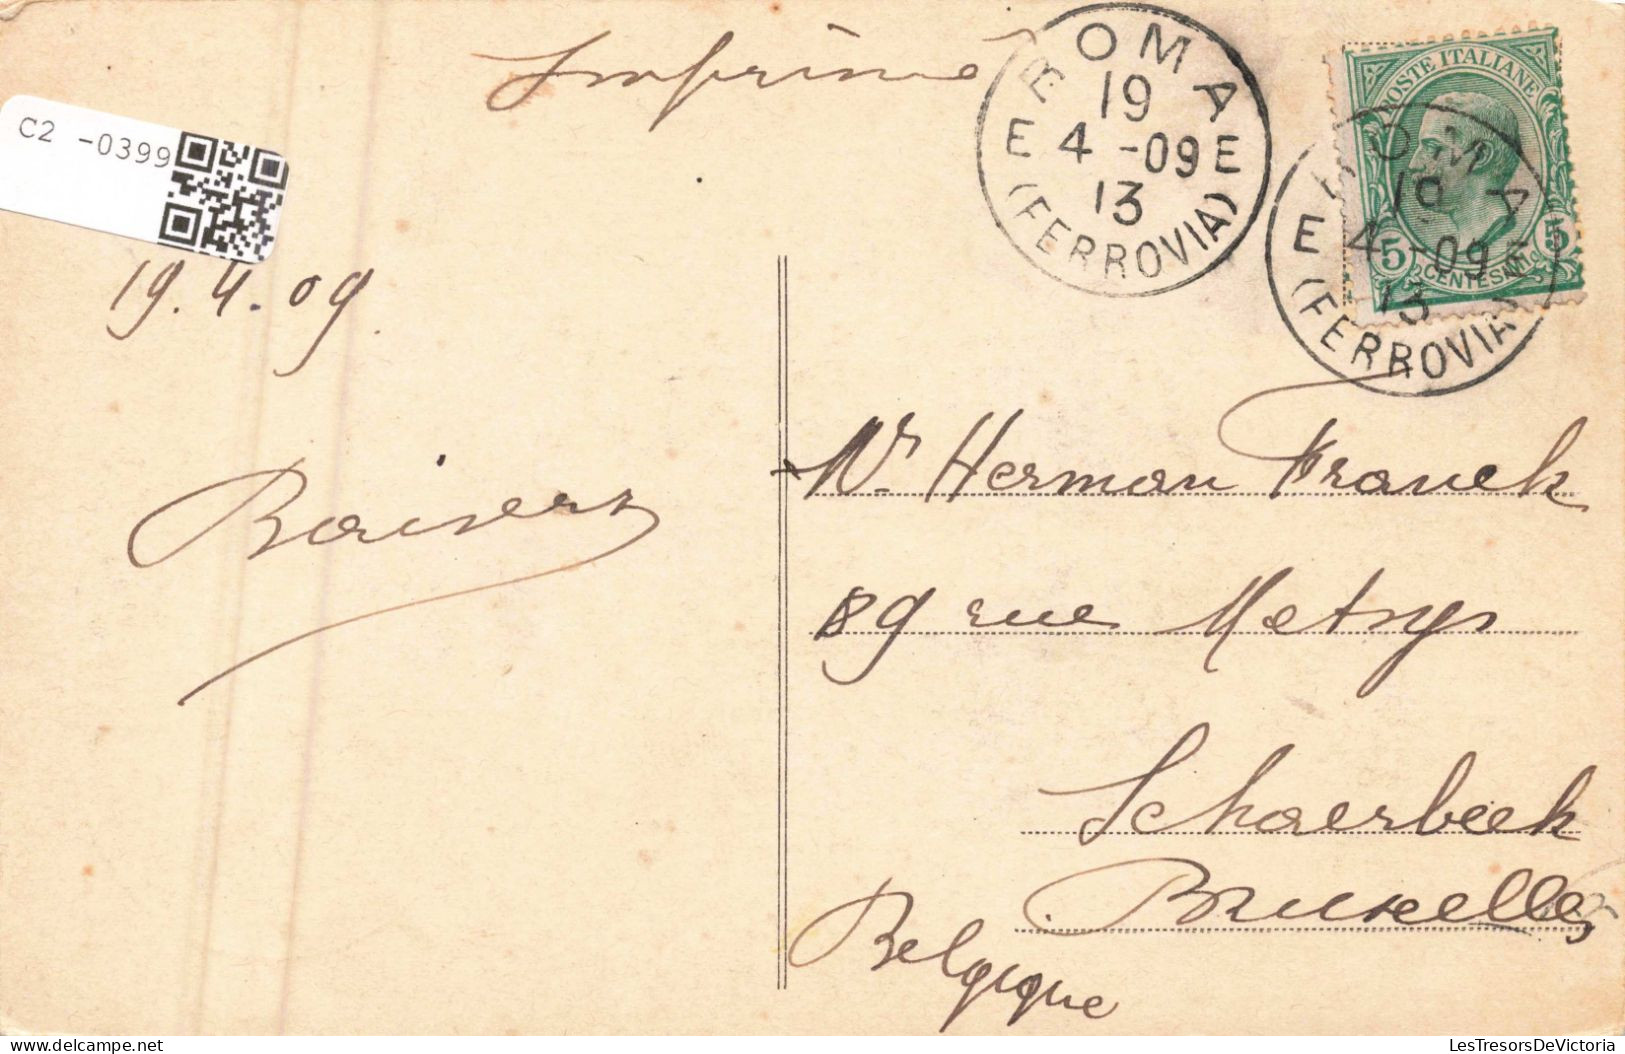 Imprimé
C2 -0399
ROMA
19
E 4 -09 E
13
(FERROVIA)
POSTE ITALIANE
5 5
CENTESIMI
ROMA
19
E 4 -09 E
13
(FERROVIA)
19.4.09.
Baisers
Mr Herman Franck
89 rue Metsys
Schaerbeek
Bruxelles
Belgique
delcampe.net
LesTresorsDeVictoria